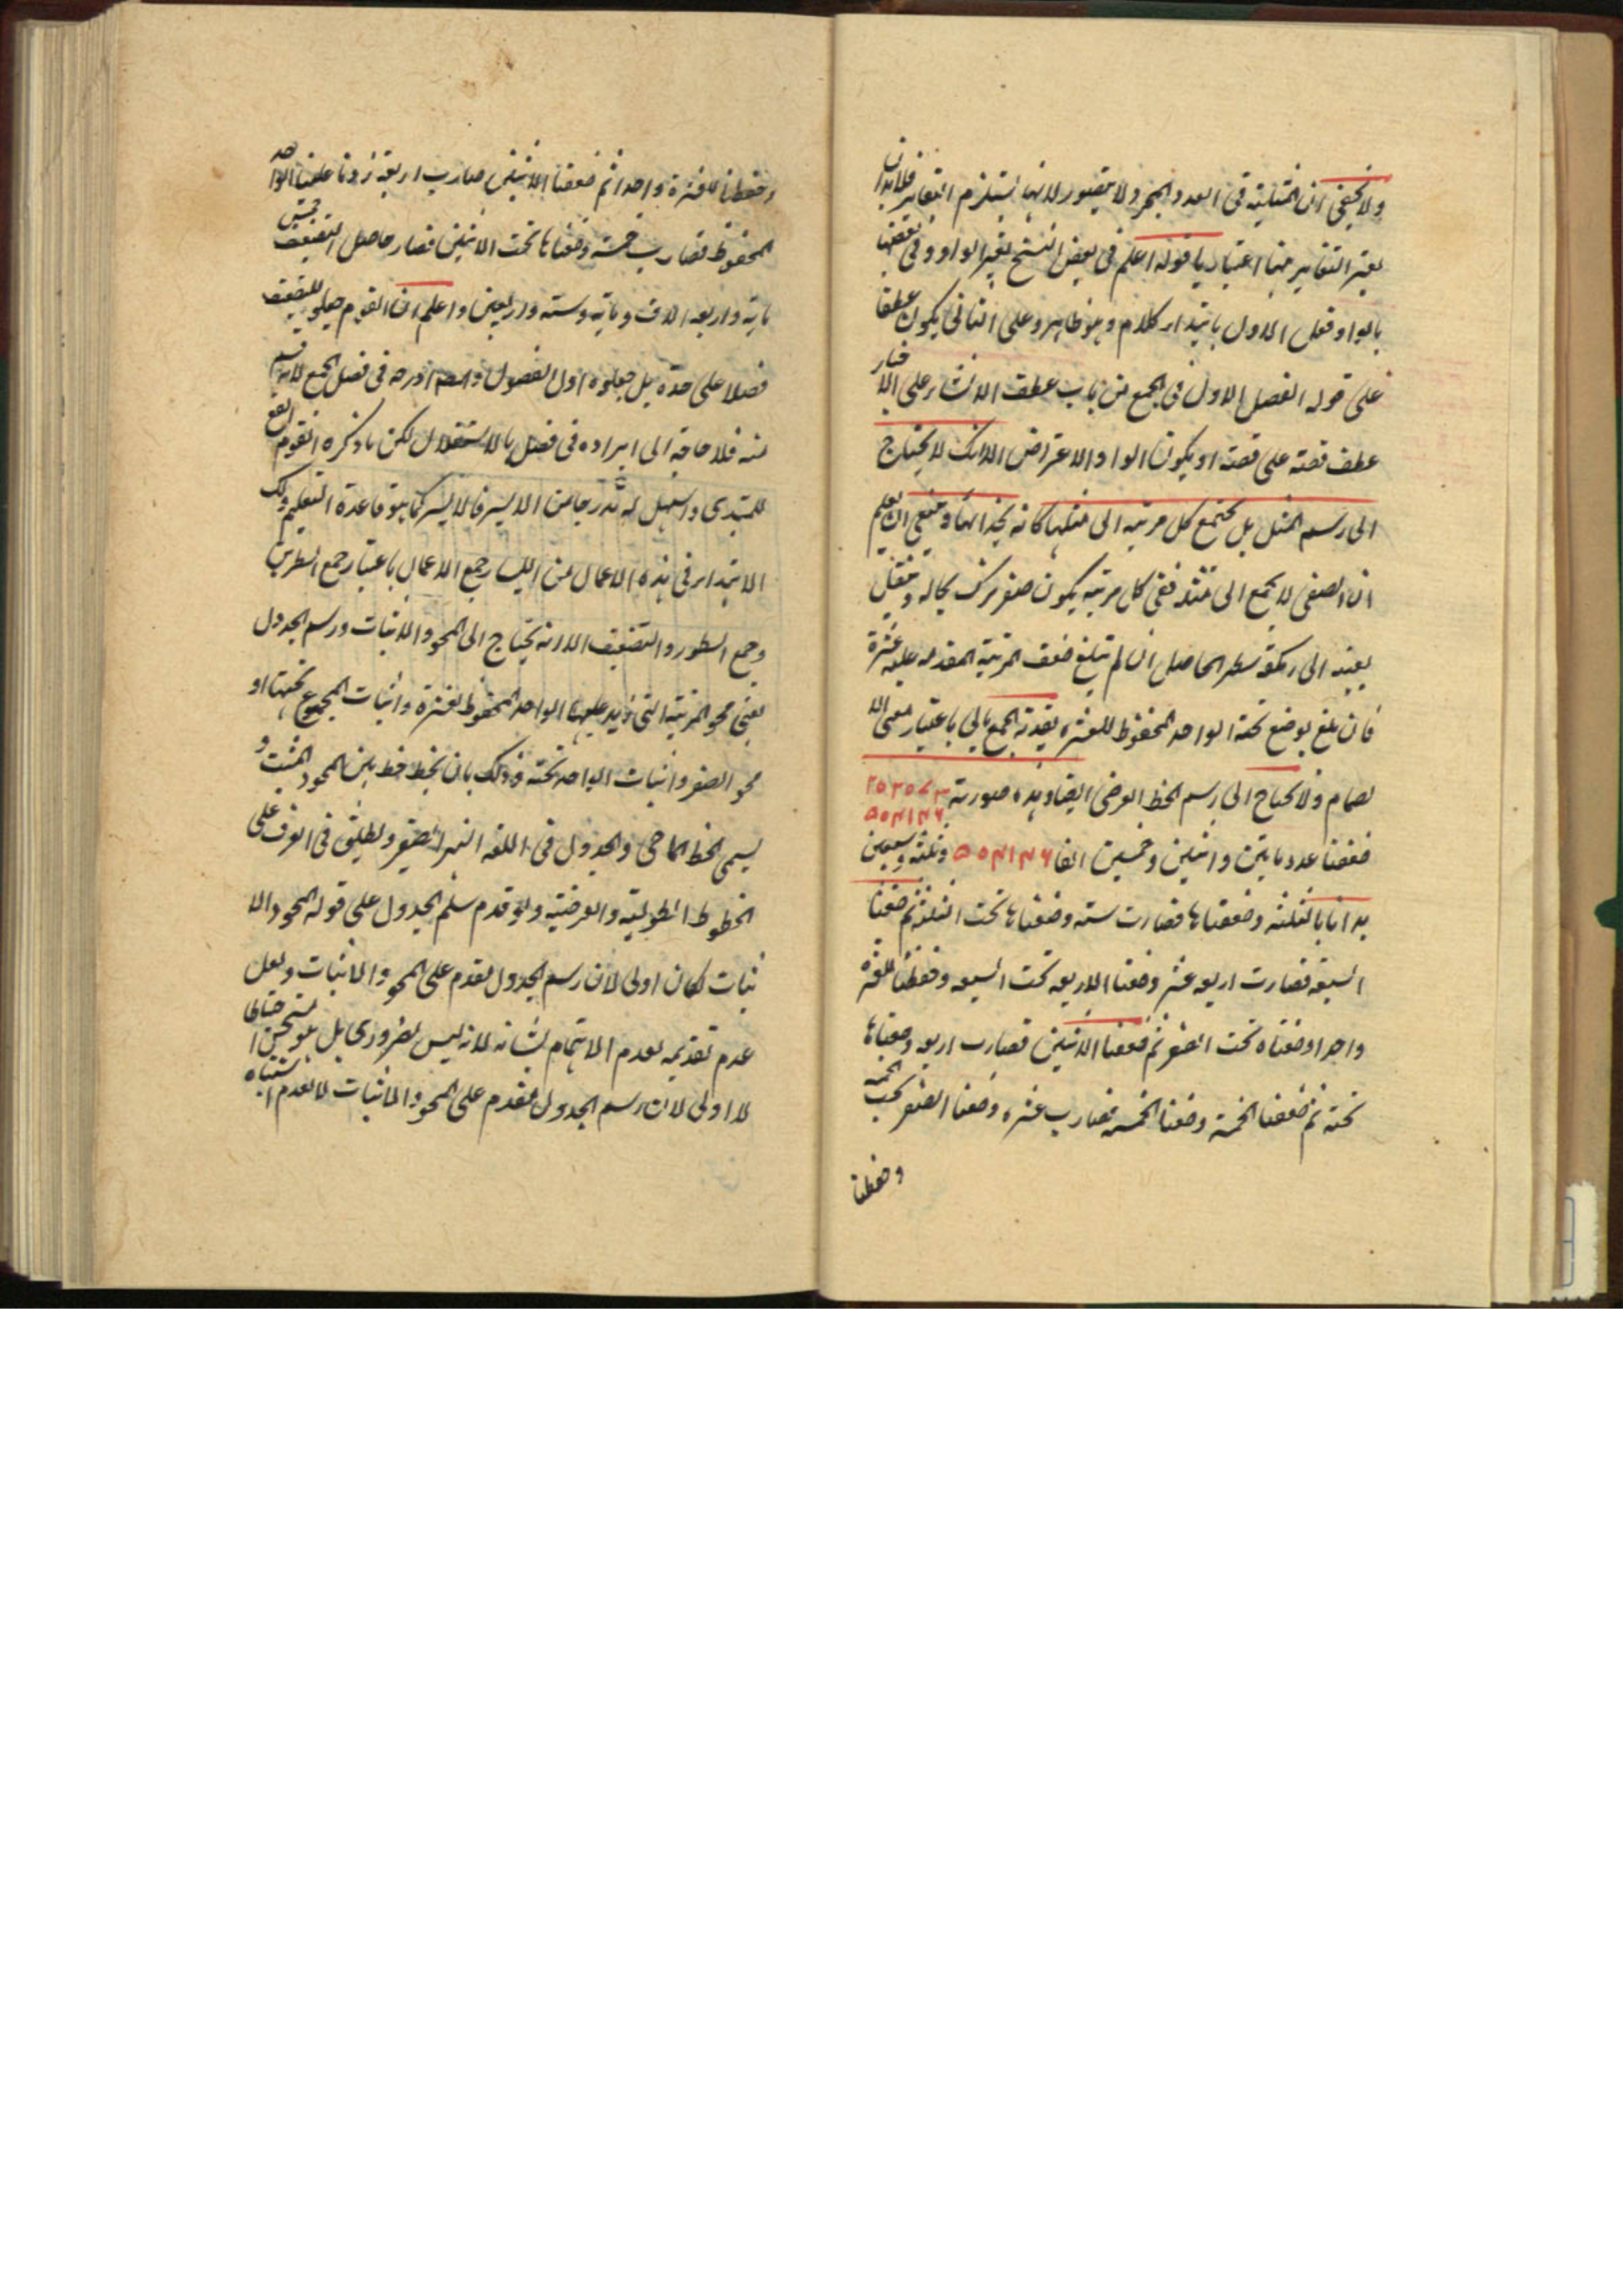 ولا يخفى ان المثلية فى العدد والجزء ولا يتصور لانها يستلزم التغاير فلابد ان
يعتبر التغاير هنا اعتباريا قوله اعلم فى بعض النسخ بغير الواو وفى بعضها
بالواو فعلى الاول بابتداء كلام وهو ظاهر وعلى الثانى يكون عطفا
على قوله الفصل الاول فى الجمع من باب عطف الانشاء على الاخبار
عطف قصة على قصة او يكون الواو الاعتراض الا انك لا يحتاج
الى رسم المثل بل يجتمع كل مرتبه الى مثلها كانه بحذائها وينبغى ان يعلم
ان الصفر لا يجمع الى مثله ففى كل مرتبه يكون صفر يترك بحاله وينقل
بعينه الى سطر الحاصل ان لم يبلغ ضعف المرتبة المقدمه عليه عشرة
فان بلغ يوضع تحته الواحد المحفوظ للعشره بقدته الجمع بالى باعتبار معنى الا
نضمام ولا يحتاج الى رسم الخط العرضى ايضا وهذه صورته ٢٥٢٥٧٣
٥٥٤١٤٦
ضعفنا عدد مايتين واثنين وخمسين الفا ٥٥٤١٤٦ وثلثه وسبعين
بدانا بالثلثه وضعفناها فصارت سته وضعناها تحت الثلثه ثم ضعفنا
السبعة فصارت اربعه عشر وضعنا الاربعه تحت السبعه وحفظنا للعشره
واحدا وضعناه تحت الصفر ثم ضعفنا الاثنين فصارت اربعه وضعناها
تحته ثم ضعفنا الخمسة وضعنا الخمسة فصارت عشره وضعنا الصفر تحت الخمسه
وحفظنا
وحفظنا للعشرة واحدا ثم ضعفنا الاثنين صارت اربعة زدنا عليها الواحد
المحفوظ فصارت خمسة وضعناها تحت الاثنين فصار حاصل التضعيف خمس
ماية واربعه الاف وماية وسته واربعين واعلم ان القوم جعلو للتضعيف
فصلا على حدة بل جعلوه اول الفصول والمصـ ادرجه فى فصل الجمع لانه قسم
منه فلا حاجة الى ايراده فى فصل بالاستقلال لكن ما ذكره القوم انفع
للمبتدى واسهل له تدرجا من الايسر فالايسر كما هو قاعدة التعليم ولك
الابتداء فى هذه الاعمال من اليسار جمع الاعمال باعتبار جمع السطرين
وجمع السطور والتضعيف الا انه يحتاج الى المحو والاثبات ورسم الجدول
يعنى محو المرتبة التى يزيد عليها الواحد المحفوظ لعشرة واثبات المجموع تحتها او
محو الصفر واثبات الواحد تحته وذلك بان يخط خط بين المحو والمثبت و
يسمى الخط الماحى والجدول فى اللغه النهر الصغير ويطلق فى العرف على
الخطوط الطولية والعرضية ولو قدم سلم الجدول على قوله المحو والا
ثبات لكان اولى لان رسم الجدول مقدم على المحو والاثبات ولعل
عدم تقديمه لعدم الاهتمام بشانه لانه ليس بضرورى بل هو مستحسن احتياطا
لا اولى لان رسم الجدول مقدم على المحو والاثبات لا لعدم اشتباه